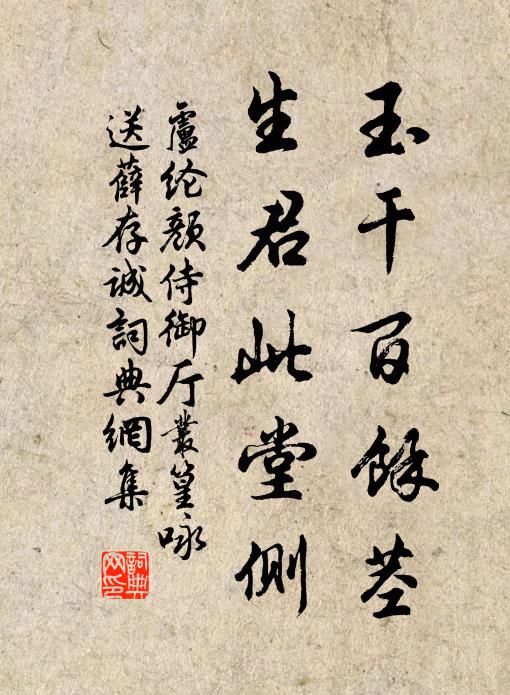 玉干百餘茎
生君此堂側
盧纶颜侍御厅叢篁咏
送薛存诚詞典網集
詞典網印